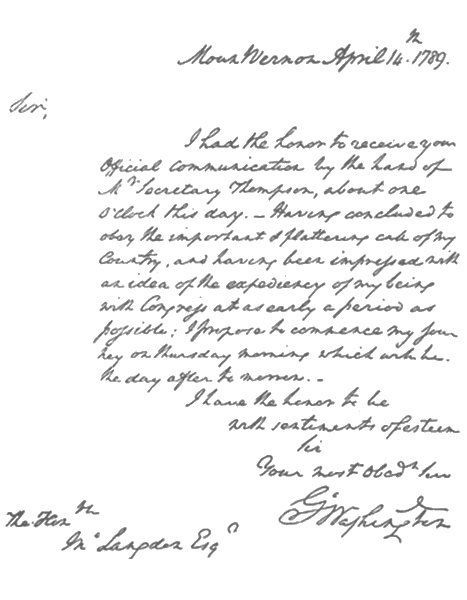 Mount Vernon April 14th. 1789.
Sir,
I had the honor to receive your
Official Communication by the hand of
Mr Secretary Thompson, about one
o'Clock this day. — Having concluded to
obey the important & flattering call of my
Country, and having been impressed with
an idea of the expediency of my being
with Congress at as early a period as
possible; I propose to commence my jour
ney on thursday morning which will be
the day after to morrow. —
I have the honor to be
with sentiments of esteem
Sir
Your most Obedt Ser
Go Washington
The Honble
Jno Langdon Esqr